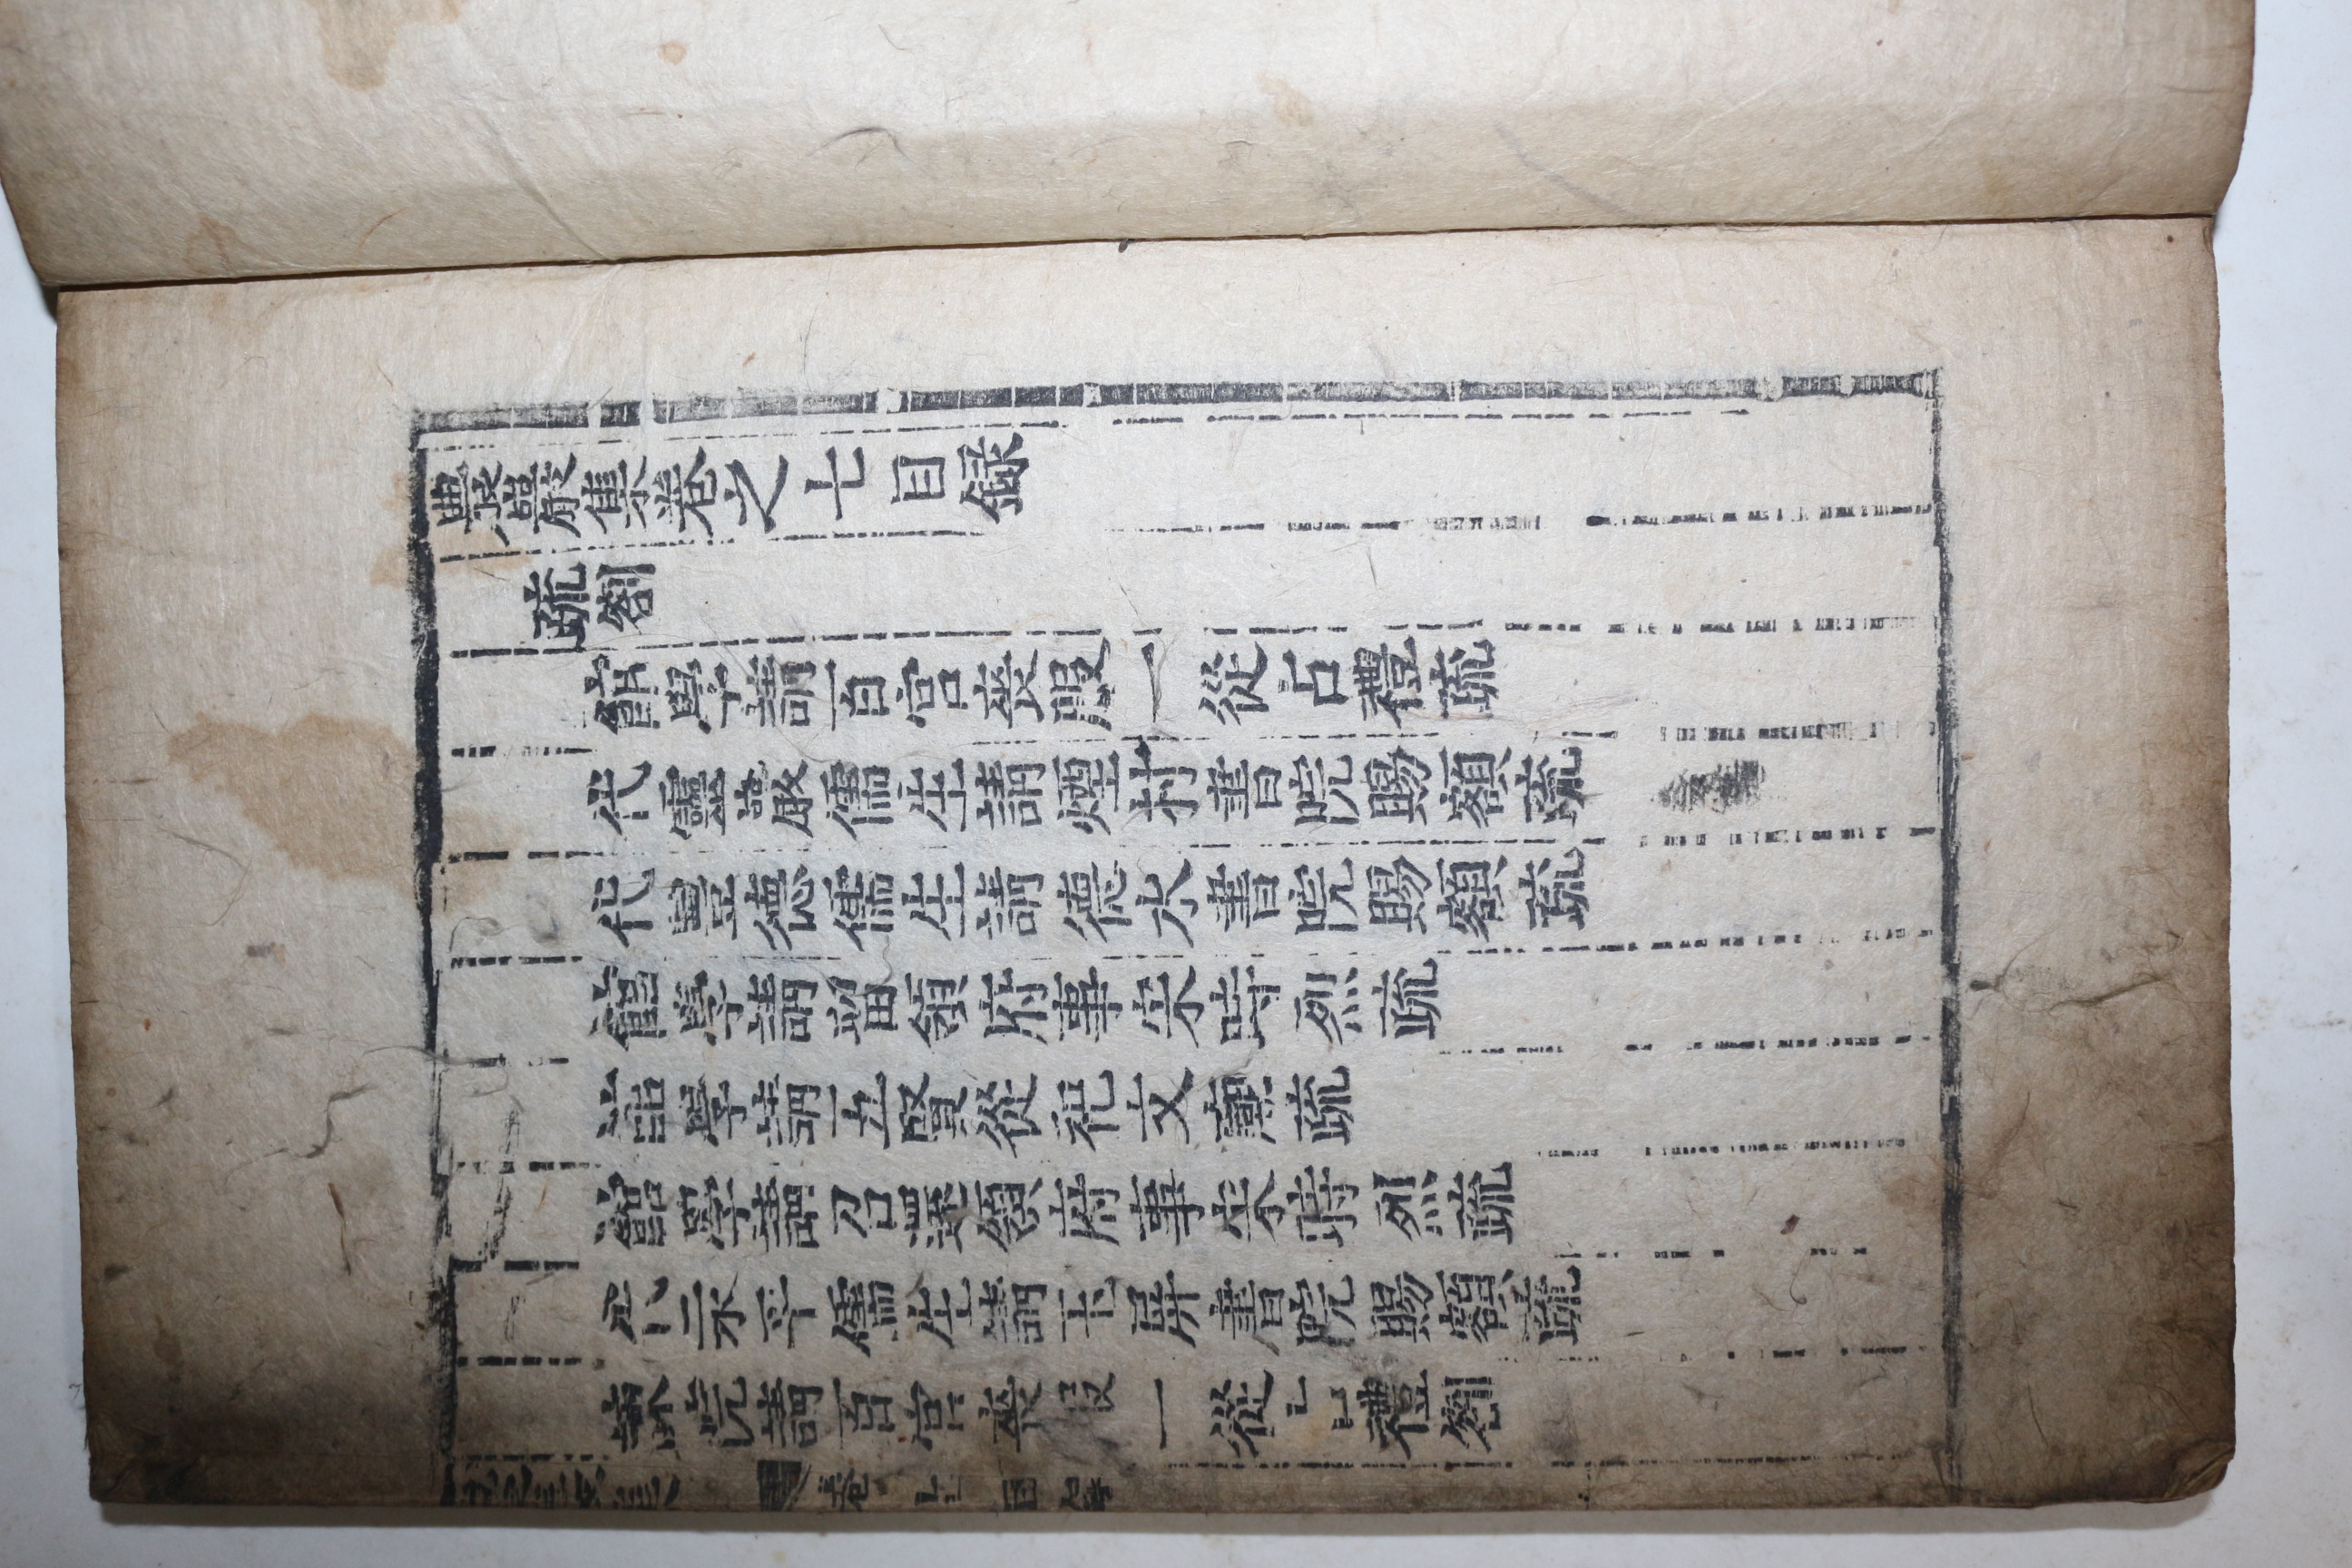 農巖集卷之七目録
疏劄
館學請百官喪服一從古禮疏
代靈巖儒生請煙村書院賜額疏
代豊德儒生請德水書院賜額疏
館學請留領府事宋時烈疏
館學請五賢從祀文廟疏
館學請召還領府事宋時烈疏
代永平儒生請玉屏書院賜額疏
諫院請百官喪服一從古禮劄
卷 目